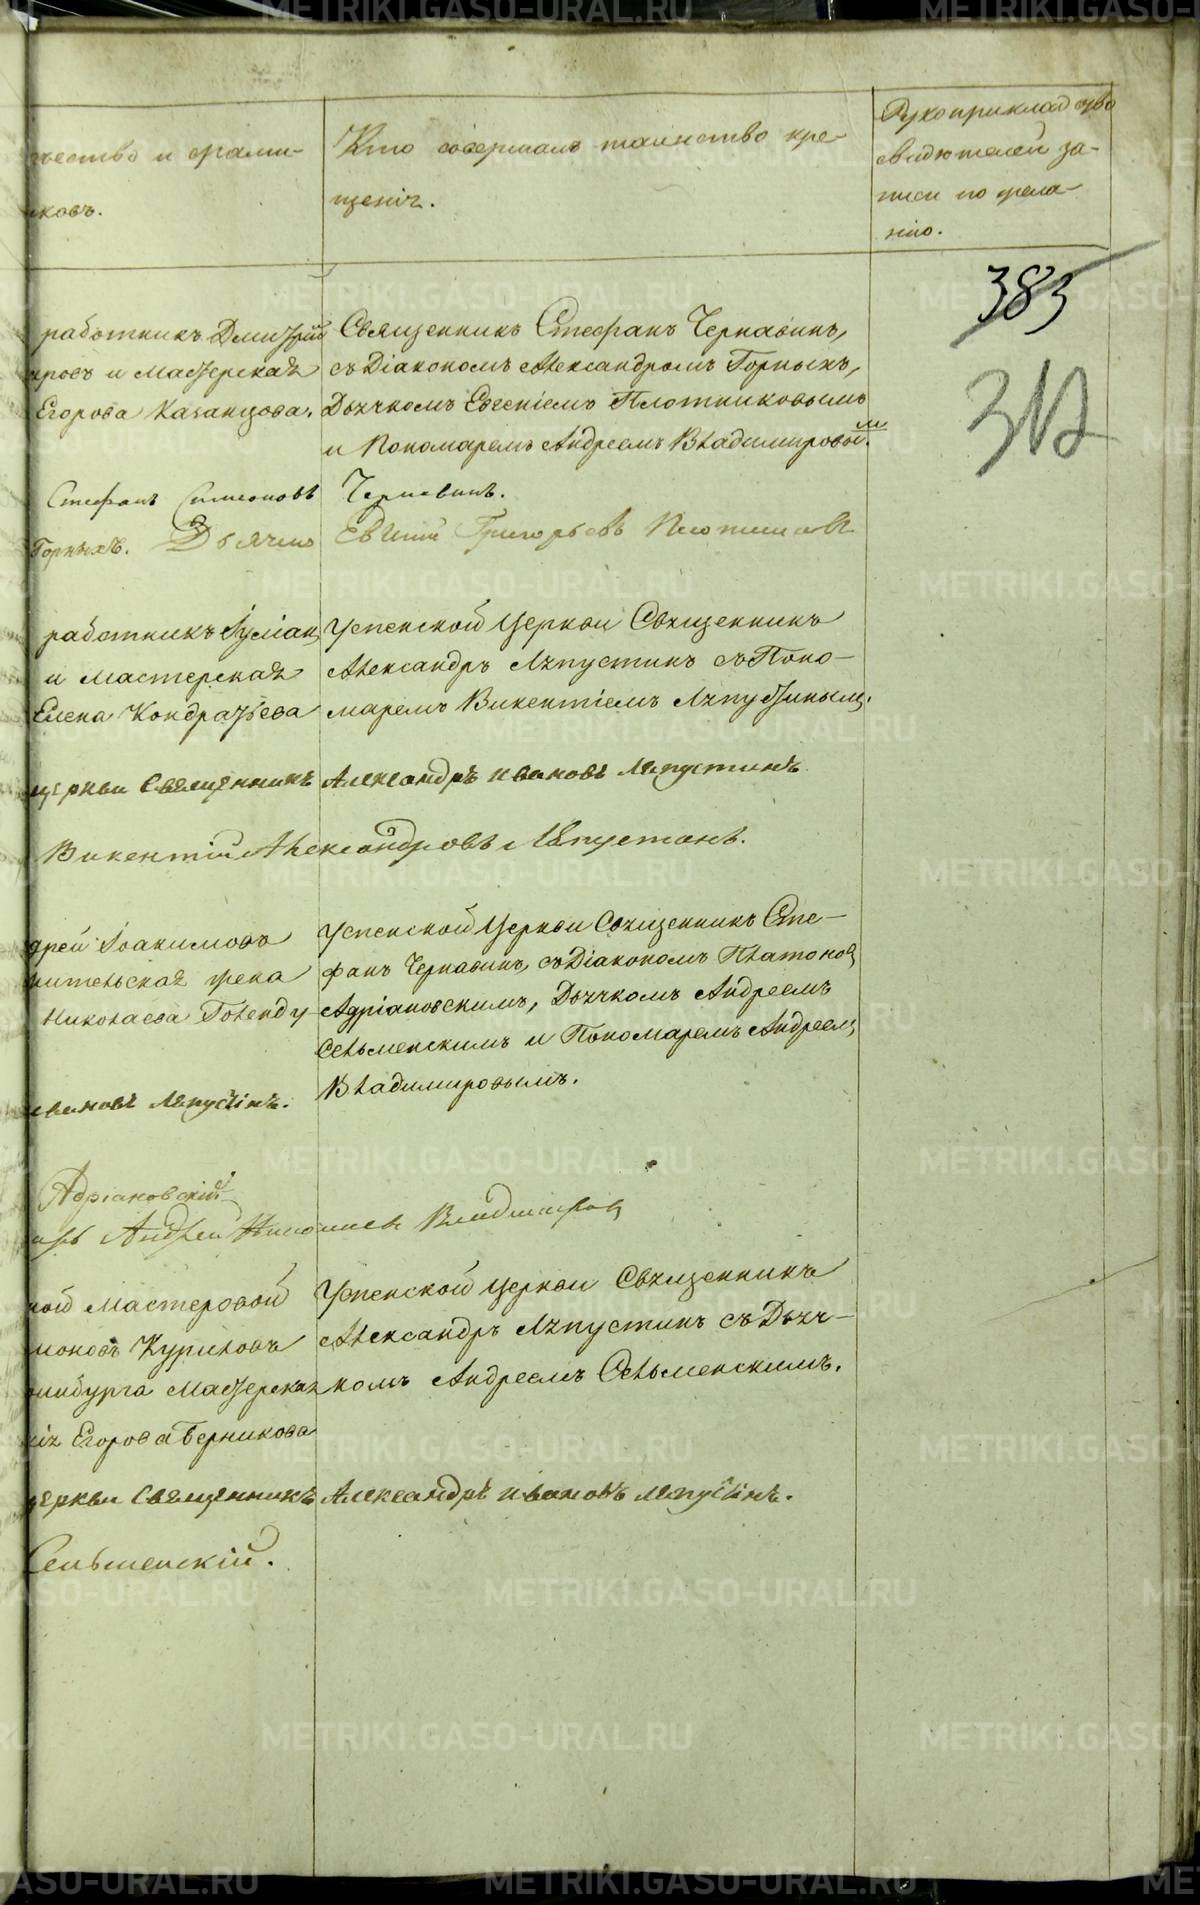 чество и фами-
ковъ.
Кто совершалъ таинство кре-
щенія.
Рукоприкладство
свидѣтелей за-
писи по жела-
нію.
383
312
работникъ Дмитрій
ровъ и Мастерская
Егорова Казанцова.
Священникъ Стефанъ Чернавинъ,
съ Діакономъ Александромъ Горныхъ,
Дьячкомъ Евгеніемъ Плотниковымъ
и Пономаремъ Андреемъ Владимировымъ.
Стефанъ Симеоновъ Чернавинъ.
Горныхъ. Дьячекъ Евгеній Григорьевъ Плотниковъ
работникъ Іуліан
и Мастерская
Елена Кондратьева
Успенской Церкви Священникъ
Александръ Ляпустинъ съ Поно-
маремъ Викентіемъ Ляпустинымъ.
церкви Священникъ Александръ Ивановъ Ляпустинъ
Викентій Александровъ Ляпустинъ.
дрей Іоакимовъ
жительская жена
Николаева Голенду
Успенской Церкви Священникъ Сте-
фанъ Чернавинъ, съ Діакономъ Платоном
Адріановскимъ, Дьячкомъ Андреемъ
Сельменскимъ и Пономаремъ Андреем
Владимировымъ.
Ивановъ Ляпустинъ.
Адріановскій
Андрей Николаевъ Владимиров
ной Мастеровой
моновъ Куриловъ
ринбурга Мастерская
Егорова Берникова
Успенской Церкви Священникъ
Александръ Ляпустинъ съ Дьяч-
комъ Андреемъ Сельменскимъ.
церкви Священникъ Александръ Ивановъ Ляпустинъ.
Сельменскій.
METRIKI.GASO-URAL.RU